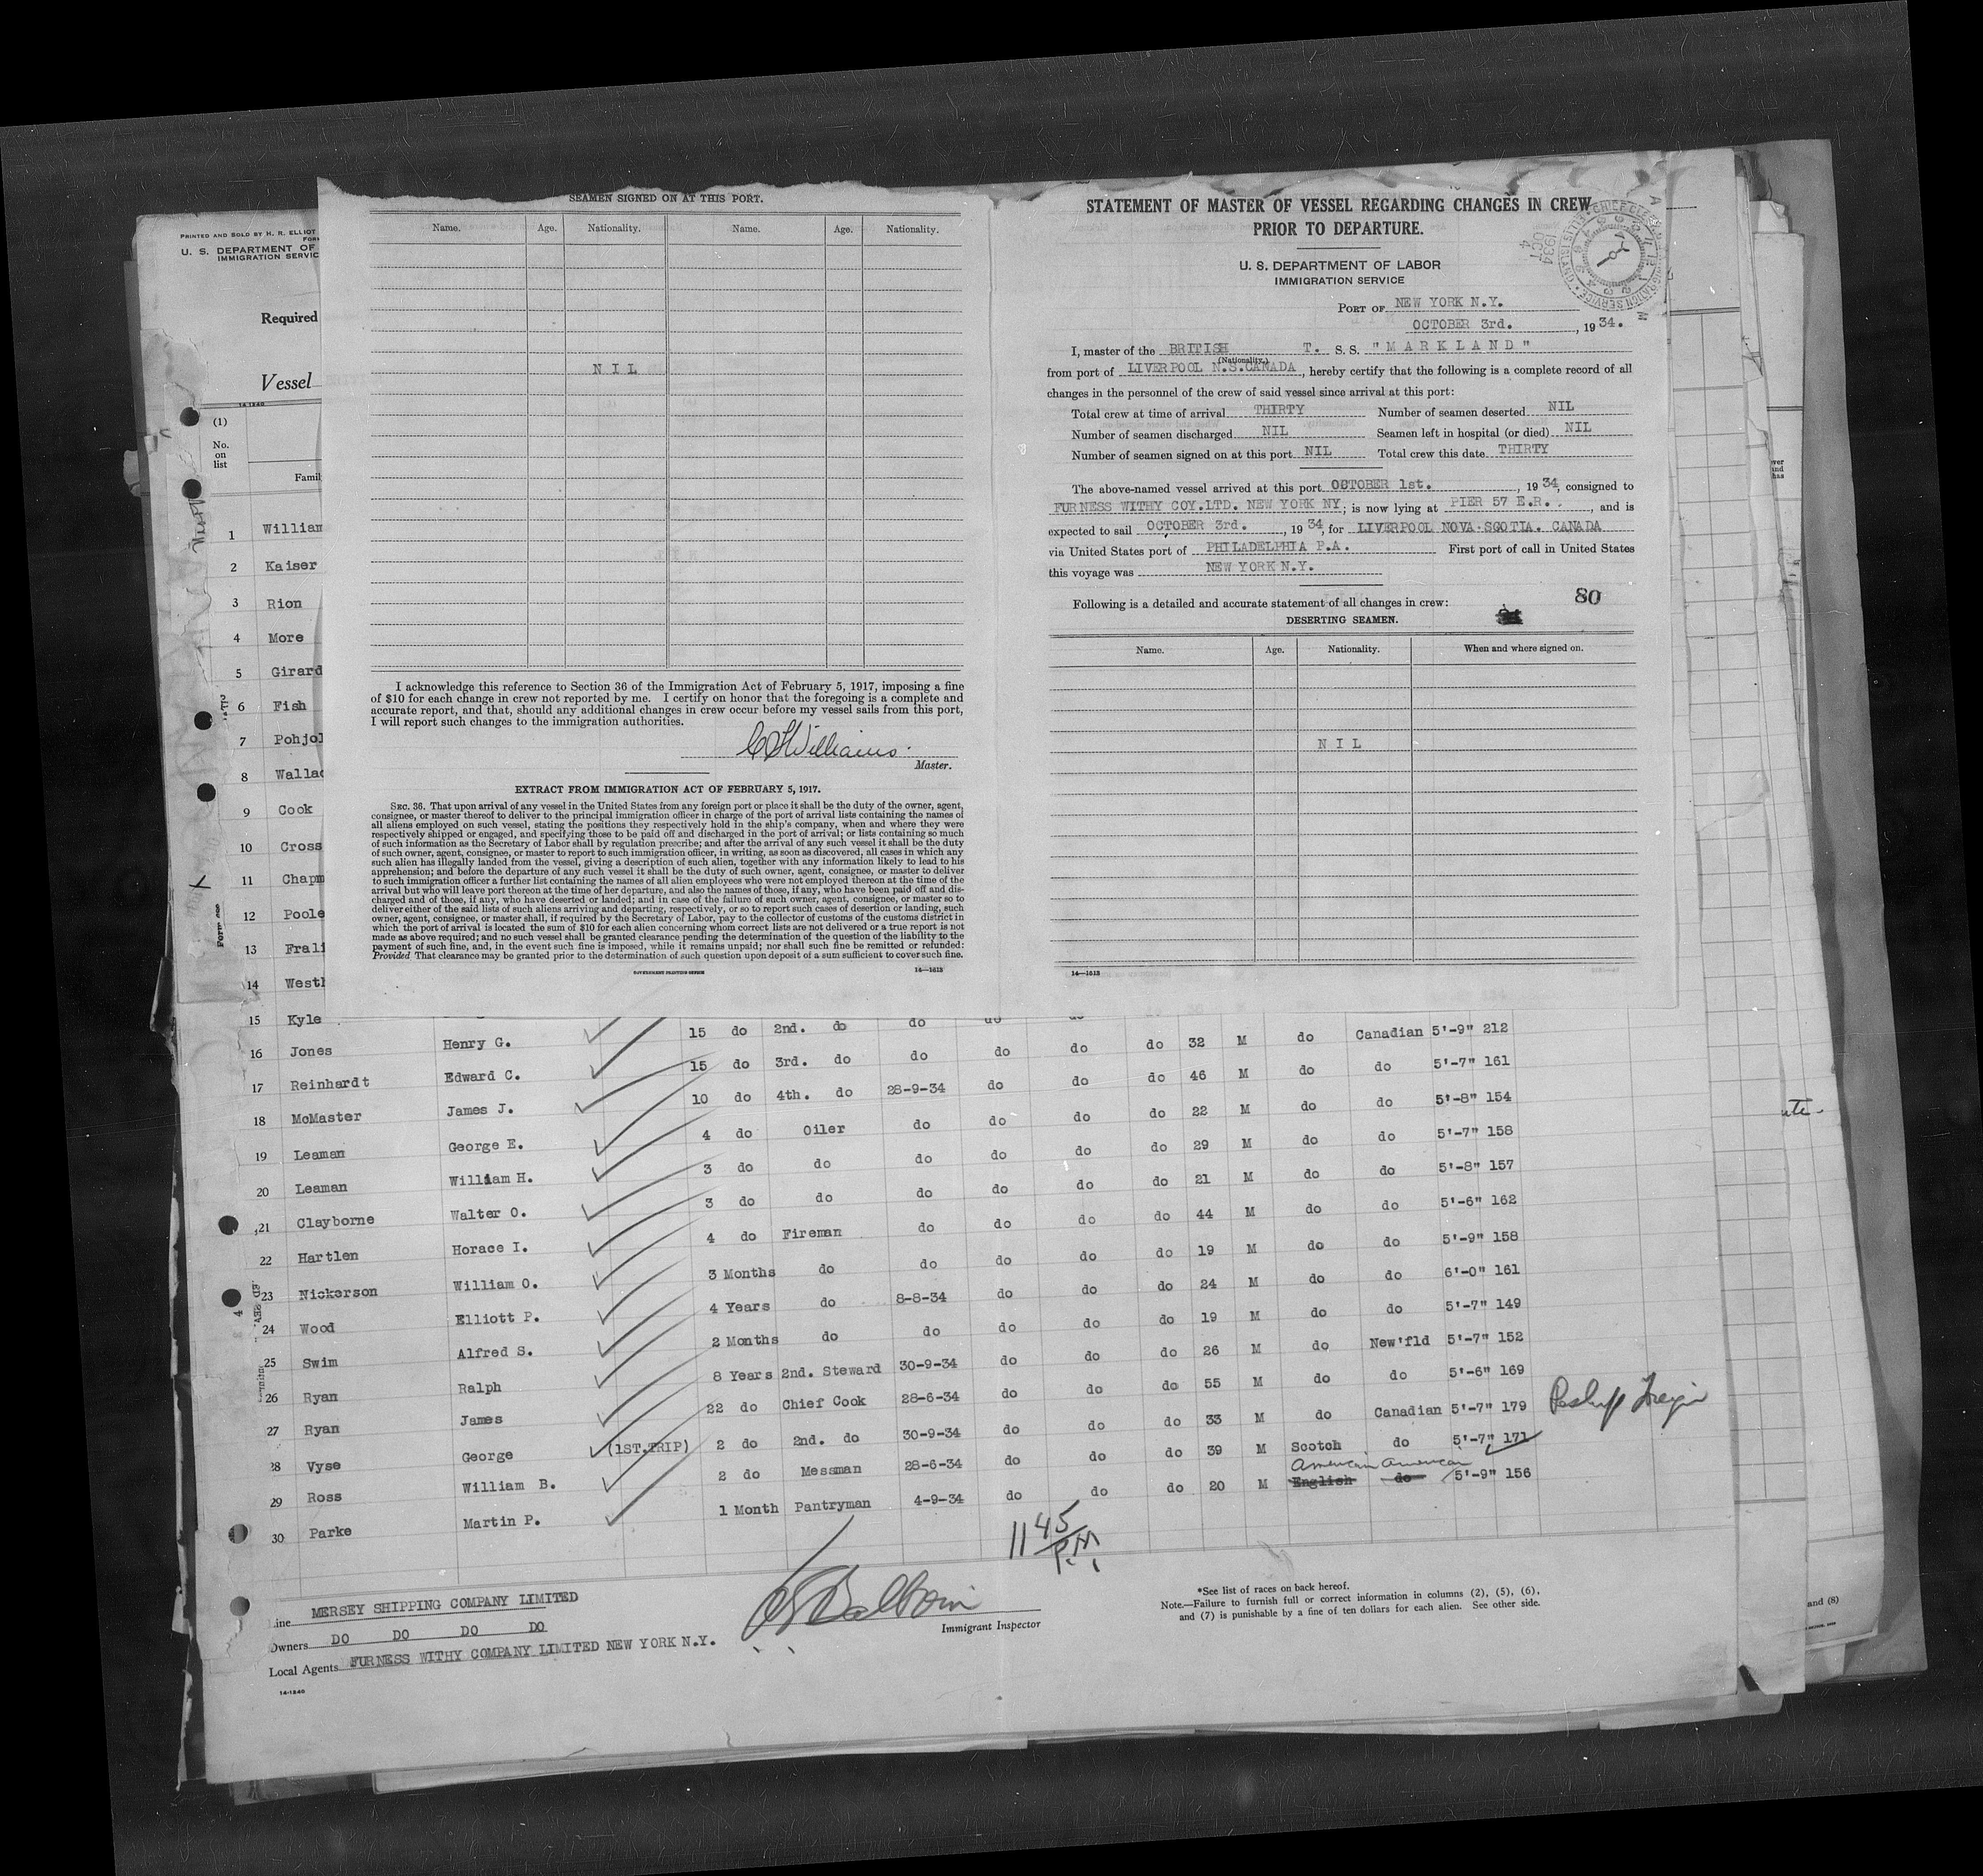 PRINTED AND SOLD BY H. R. ELLIOT
U. S. DEPARTMENT OF
IMMIGRATION SERVIC
Required
Vessel
14-1240
(1)
No.
on
list
Famil
1 William
2 Kaiser
3 Rion
4 More
5 Girard
6 Fish
7 Pohjol
8 Wallac
9 Cook
10 Cross
11 Chapm
12 Poole
13 Frali
14 Westh
15 Kyle
SEAMEN SIGNED ON AT THIS PORT.
Name. Age. Nationality. Name. Age. Nationality.
N I L
I acknowledge this reference to Section 36 of the Immigration Act of February 5, 1917, imposing a fine
of $10 for each change in crew not reported by me. I certify on honor that the foregoing is a complete and
accurate report, and that, should any additional changes in crew occur before my vessel sails from this port,
I will report such changes to the immigration authorities.
C F Williams.
Master.
EXTRACT FROM IMMIGRATION ACT OF FEBRUARY 5, 1917.
SEC. 36. That upon arrival of any vessel in the United States from any foreign port or place it shall be the duty of the owner, agent,
consignee, or master thereof to deliver to the principal immigration officer in charge of the port of arrival lists containing the names of
all aliens employed on such vessel, stating the positions they respectively hold in the ship's company, when and where they were
respectively shipped or engaged, and specifying those to be paid off and discharged in the port of arrival; or lists containing so much
of such information as the Secretary of Labor shall by regulation prescribe; and after the arrival of any such vessel it shall be the duty
of such owner, agent, consignee, or master to report to such immigration officer, in writing, as soon as discovered, all cases in which any
such alien has illegally landed from the vessel, giving a description of such alien, together with any information likely to lead to his
apprehension; and before the departure of any such vessel it shall be the duty of such owner, agent, consignee, or master to deliver
to such immigration officer a further list containing the names of all alien employees who were not employed thereon at the time of the
arrival but who will leave port thereon at the time of her departure, and also the names of those, if any, who have been paid off and dis-
charged and of those, if any, who have deserted or landed; and in case of the failure of such owner, agent, consignee, or master so to
deliver either of the said lists of such aliens arriving and departing, respectively, or so to report such cases of desertion or landing, such
owner, agent, consignee, or master shall, if required by the Secretary of Labor, pay to the collector of customs of the customs district in
which the port of arrival is located the sum of $10 for each alien concerning whom correct lists are not delivered or a true report is not
made as above required; and no such vessel shall be granted clearance pending the determination of the question of the liability to the
payment of such fine, and, in the event such fine is imposed, while it remains unpaid; nor shall such fine be remitted or refunded:
Provided That clearance may be granted prior to the determination of such question upon deposit of a sum sufficient to cover such fine.
GOVERNMENT PRINTING OFFICE 14—1613
STATEMENT OF MASTER OF VESSEL REGARDING CHANGES IN CREW
PRIOR TO DEPARTURE.
1934 OCT 4
U. S. DEPARTMENT OF LABOR
IMMIGRATION SERVICE
PORT OF NEW YORK N.Y.
OCTOBER 3rd., 1934.
I, master of the BRITISH T. S. S. "MARKLAND"
(Nationality.)
from port of LIVERPOOL N.S.CANADA, hereby certify that the following is a complete record of all
changes in the personnel of the crew of said vessel since arrival at this port:
Total crew at time of arrival THIRTY Number of seamen deserted NIL
Number of seamen discharged NIL Seamen left in hospital (or died) NIL
Number of seamen signed on at this port NIL Total crew this date THIRTY
The above-named vessel arrived at this port OCTOBER 1st., 1934, consigned to
FURNESS WITHY COY.LTD. NEW YORK NY; is now lying at PIER 57 E.R., and is
expected to sail OCTOBER 3rd., 1934, for LIVERPOOL NOVA SCOTIA. CANADA
via United States port of PHILADELPHIA P.A. First port of call in United States
this voyage was NEW YORK N.Y.
80
Following is a detailed and accurate statement of all changes in crew:
DESERTING SEAMEN.
Name. Age. Nationality. When and where signed on.
N I L
14—1613
16 Jones Henry G. 15 do 2nd. do do
17 Reinhardt Edward C. 15 do 3rd. do do do do do 32 M do Canadian 5'-9" 212
18 McMaster James J. 10 do 4th. do 28-9-34 do do do 46 M do do 5'-7" 161
19 Leaman George E. 4 do Oiler do do do do 22 M do do 5'-8" 154
20 Leaman William H. 3 do do do do do do 29 M do do 5'-7" 158
21 Clayborne Walter O. 3 do do do do do do 21 M do do 5'-8" 157
22 Hartlen Horace I. 4 do Fireman do do do do 44 M do do 5'-6" 162
23 Nickerson William O. 3 Months do do do do do 19 M do do 5'-9" 158
24 Wood Elliott P. 4 Years do 8-8-34 do do do 24 M do do 6'-0" 161
25 Swim Alfred S. 2 Months do do do do do 19 M do do 5'-7" 149
26 Ryan Ralph 8 Years 2nd. Steward 30-9-34 do do do 26 M do New'fld 5'-7" 152
27 Ryan James 22 do Chief Cook 28-6-34 do do do 55 M do do 5'-6" 169
28 Vyse George (1ST.TRIP) 2 do 2nd. do 30-9-34 do do do 33 M do Canadian 5'-7" 179
29 Ross William B. 2 do Messman 28-6-34 do do do 39 M Scotch do 5'-7" 171
American American
30 Parke Martin P. 1 Month Pantryman 4-9-34 do do do 20 M English do 5'-9" 156
11 45 P.M.
Line MERSEY SHIPPING COMPANY LIMITED
Owners DO DO DO DO
Local Agents FURNESS WITHY COMPANY LIMITED NEW YORK N.Y.
14-1240
Immigrant Inspector
*See list of races on back hereof.
Note.—Failure to furnish full or correct information in columns (2), (5), (6),
and (7) is punishable by a fine of ten dollars for each alien. See other side.
and (8)